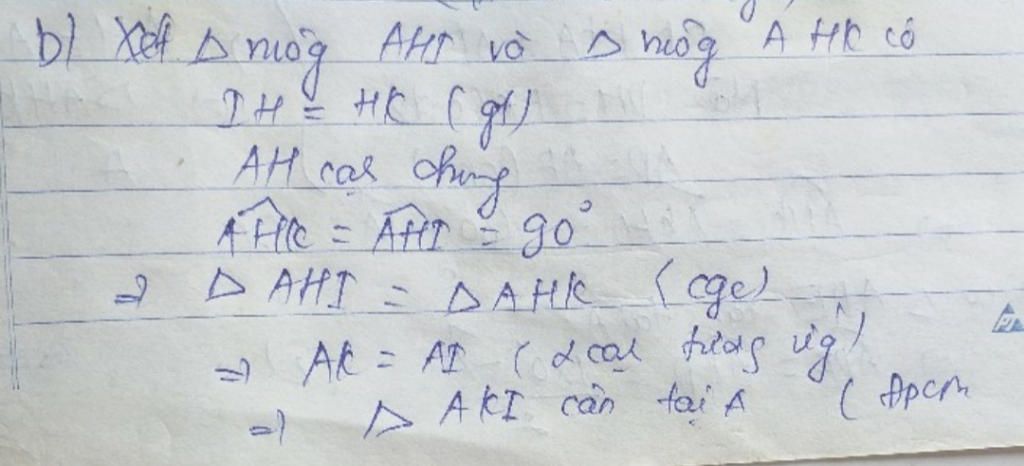 b) Xét Δ vuông AHI và Δ vuông AHK có
IH = HK (gt)
AH cạh chung
AHK = AHI = 90°
=> Δ AHI = Δ AHK (cgc)
=> AK = AI (2 cạh tương ứg)
=> Δ AKI cân tại A (đpcm